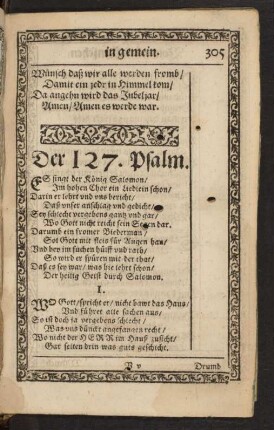 in gemein. 305
Wünsch daß wir alle werden fromb/
Damit ein jedr in Himmel kom/
Da angehn wird das Jubeljar/
Amen/ Amen es werde war.
Der 127. Psalm.
ES singt der König Salomon/
Im hohen Chor ein Liedlein schon/
Darin er lehrt vnd vns bericht/
Daß vnser anschlag vnd gedicht/
Sey schlecht vergebens gantz vnd gar/
Wo Gott nicht reicht sein Segen dar.
Darumb ein fromer Biederman/
Sol Gott mit fleis für Augen han/
Vnd bey im suchen hülff vnd rath/
So wird er spüren mit der that/
Daß es sey war/ was hie lehrt schon/
Der heilig Geist durch Salomon.
I.
WO Gott/ spricht er/ nicht bawt das Haus/
Vnd führet alle sachen aus/
So ist doch ja vergebens schlecht/
Was vns dünckt angefangen recht/
Wo nicht der HERR im Hauß zusicht/
Gar selten drin was guts geschicht.
v Drumb